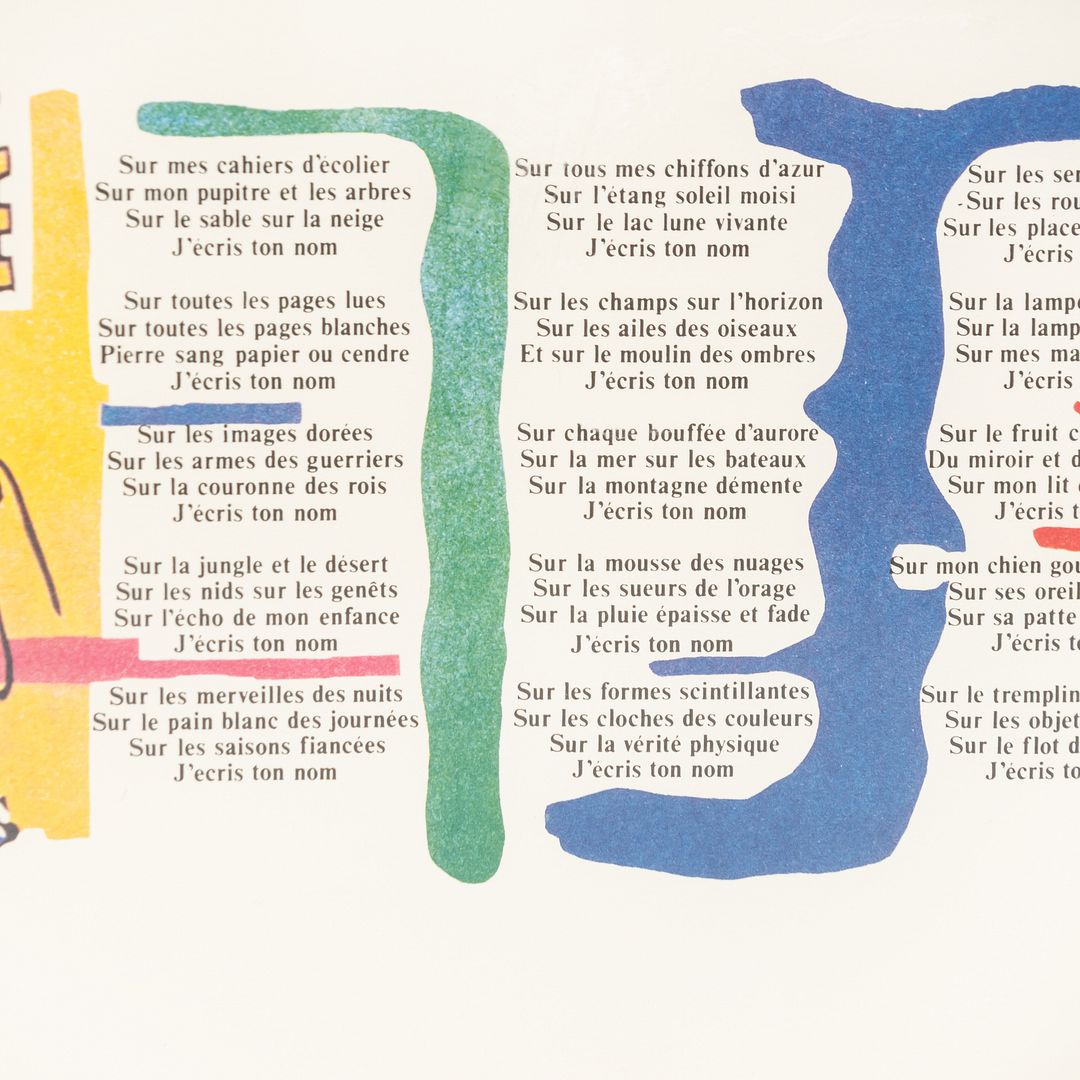 Sur mes cahiers d'écolier
Sur mon pupitre et les arbres
Sur le sable sur la neige
J'écris ton nom
Sur toutes les pages lues
Sur toutes les pages blanches
Pierre sang papier ou cendre
J'écris ton nom
Sur les images dorées
Sur les armes des guerriers
Sur la couronne des rois
J'écris ton nom
Sur la jungle et le désert
Sur les nids sur les genêts
Sur l'écho de mon enfance
J'écris ton nom
Sur les merveilles des nuits
Sur le pain blanc des journées
Sur les saisons fiancées
J'ecris ton nom
Sur tous mes chiffons d'azur
Sur l'étang soleil moisi
Sur le lac lune vivante
J'écris ton nom
Sur les champs sur l'horizon
Sur les ailes des oiseaux
Et sur le moulin des ombres
J'écris ton nom
Sur chaque bouffée d'aurore
Sur la mer sur les bateaux
Sur la montagne démente
J'écris ton nom
Sur la mousse des nuages
Sur les sueurs de l'orage
Sur la pluie épaisse et fade
J'écris ton nom
Sur les formes scintillantes
Sur les cloches des couleurs
Sur la vérité physique
J'écris ton nom
Sur les
Sur les
Sur les
J'écris
Sur la
Sur la
Sur mes
J'écris
Sur le fruit
Du miroir et
Sur mon lit
J'écris
Sur mon chien
Sur ses
Sur sa patte
J'écris
Sur le tremplin
Sur les
Sur le flot
J'écris